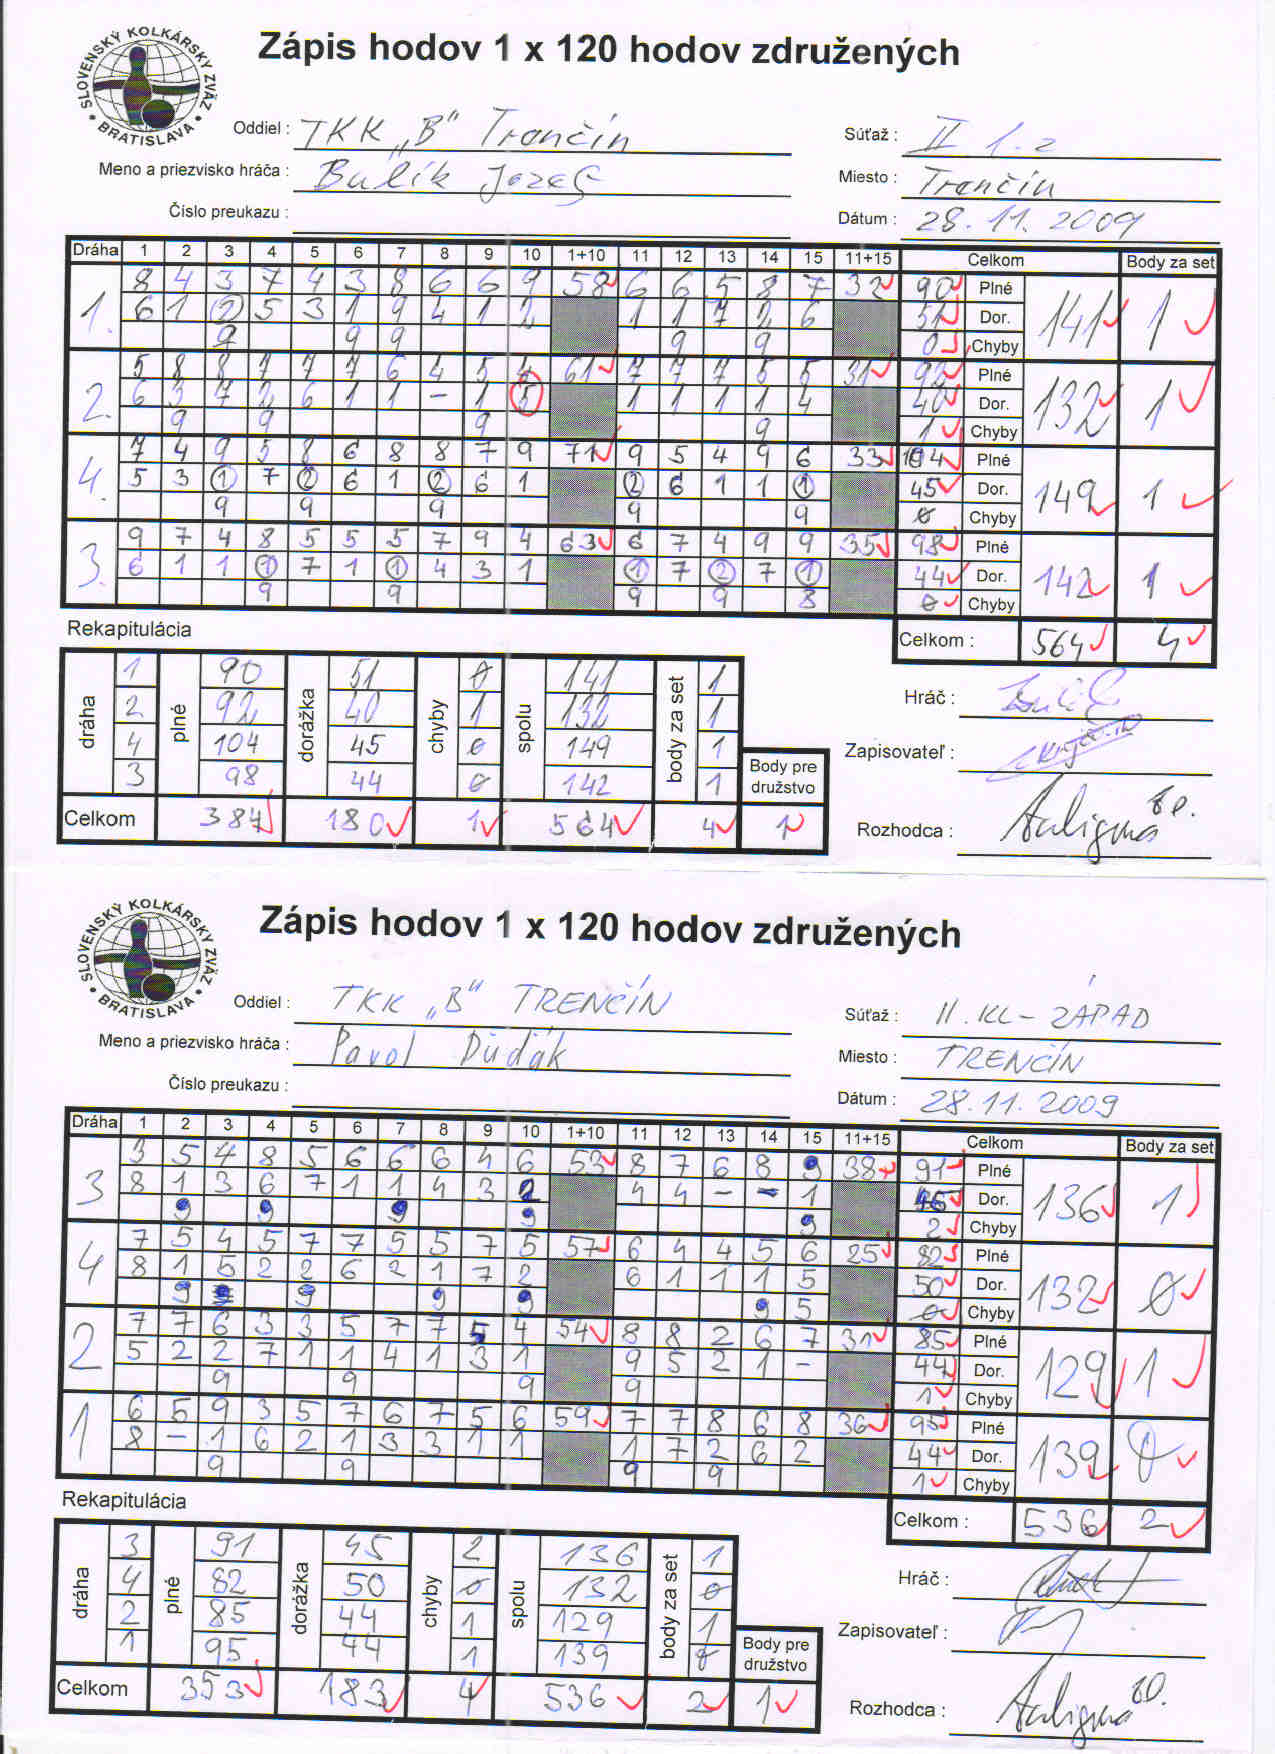 SLOVENSKÝ KOLKÁRSKY ZVÄZ • BRATISLAVA •
Zápis hodov 1 x 120 hodov združených
Oddiel : TKK „B“ Trenčín
Súťaž : II
Meno a priezvisko hráča : Bulík Jozef
Miesto : Trenčín
Číslo preukazu :
Dátum : 28. 11. 2009
Dráha 1 2 3 4 5 6 7 8 9 10 1+10 11 12 13 14 15 11+15 Celkom Body za set
1. 8 4 3 7 4 3 8 6 6 9 58 6 6 5 8 7 32 90 Plné 141 1
6 1 2 5 3 1 9 4 1 2 1 1 7 2 6 51 Dor.
9 9 9 9 9 0 Chyby
2. 5 8 8 7 7 7 6 4 5 4 61 7 7 7 5 5 31 92 Plné 132 1
6 3 7 2 6 1 1 – 1 5 1 1 1 1 4 40 Dor.
9 9 9 9 1 Chyby
4. 7 4 9 5 8 6 8 8 7 9 71 9 5 4 9 6 33 104 Plné 149 1
5 3 1 7 2 6 1 2 6 1 2 6 1 1 1 45 Dor.
9 9 9 9 9 0 Chyby
3. 9 7 4 8 5 5 5 7 9 4 63 6 7 4 9 9 35 98 Plné 142 1
6 1 1 1 7 1 1 4 3 1 1 7 2 7 1 44 Dor.
9 9 9 9 8 0 Chyby
Rekapitulácia
Celkom : 564 4
dráha plné dorážka chyby spolu body za set
1 90 51 0 141 1
2 92 40 1 132 1
4 104 45 0 149 1
3 98 44 0 142 1
Body pre družstvo
Celkom 384 180 1 564 4 1
Hráč :
Zapisovateľ :
Rozhodca :
SLOVENSKÝ KOLKÁRSKY ZVÄZ • BRATISLAVA •
Zápis hodov 1 x 120 hodov združených
Oddiel : TKK „B“ TRENČÍN
Súťaž : II. KL – ZÁPAD
Meno a priezvisko hráča : Pavol Ďuďák
Miesto : TRENČÍN
Číslo preukazu :
Dátum : 28.11. 2009
Dráha 1 2 3 4 5 6 7 8 9 10 1+10 11 12 13 14 15 11+15 Celkom Body za set
3 3 5 4 8 5 6 6 6 4 6 53 8 7 6 8 9 38 91 Plné 136 1
8 1 3 6 7 1 1 4 3 2 4 4 – – 1 45 Dor.
9 9 9 9 9 2 Chyby
4 7 5 4 5 7 7 5 5 7 5 57 6 4 4 5 6 25 82 Plné 132 0
8 1 5 2 2 6 2 1 7 2 6 1 1 1 5 50 Dor.
9 9 9 9 9 5 0 Chyby
2 7 7 6 3 3 5 7 7 5 4 54 8 8 2 6 7 31 85 Plné 129 1
5 2 2 7 1 1 4 1 3 1 9 5 2 1 – 44 Dor.
9 9 9 9 1 Chyby
1 6 5 9 3 5 7 6 7 5 6 59 7 7 8 6 8 36 95 Plné 139 0
8 – 1 6 2 1 3 3 1 1 1 7 2 6 2 44 Dor.
9 9 9 9 1 Chyby
Rekapitulácia
Celkom : 536 2
dráha plné dorážka chyby spolu body za set
3 91 45 2 136 1
4 82 50 0 132 0
2 85 44 1 129 1
1 95 44 1 139 0
Body pre družstvo
Celkom 353 183 4 536 2 1
Hráč :
Zapisovateľ :
Rozhodca :